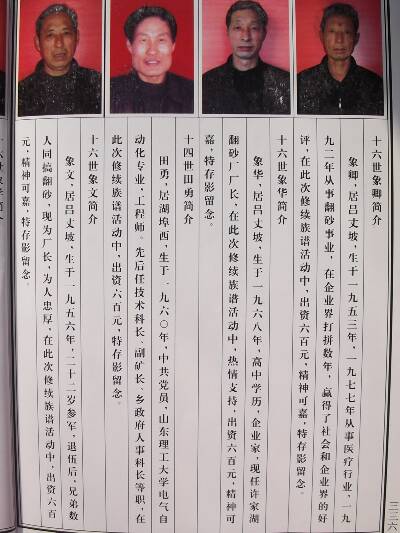 十六世象卿简介
象卿，居吕丈坡，生于一九五三年，一九七七年从事医疗行业，一九
九二年从事翻砂事业，在企业界打拼数年，赢得了社会和企业界的好
评，在此次修续族谱活动中，出资六百元，精神可嘉，特存影留念。
十六世象华简介
象华，居吕丈坡，生于一九六八年，高中学历，企业家，现任许家湖
翻砂厂厂长，在此次修续族谱活动中，热情支持，出资六百元，精神可
嘉，特存影留念。
十四世田勇简介
田勇，居湖埠西，生于一九六〇年，中共党员，山东理工大学电气自
动化专业，工程师。先后任技术科长、副矿长、乡政府人事科长等职，在
此次修续族谱活动中，出资六百元，特存影留念。
十六世象文简介
象文，居吕丈坡，生于一九五六年，二十二岁参军，退伍后，兄弟数
人同搞翻砂，现为厂长，为人忠厚，在此次修续族谱活动中，出资六百
元，精神可嘉，特存影留念。
三三六